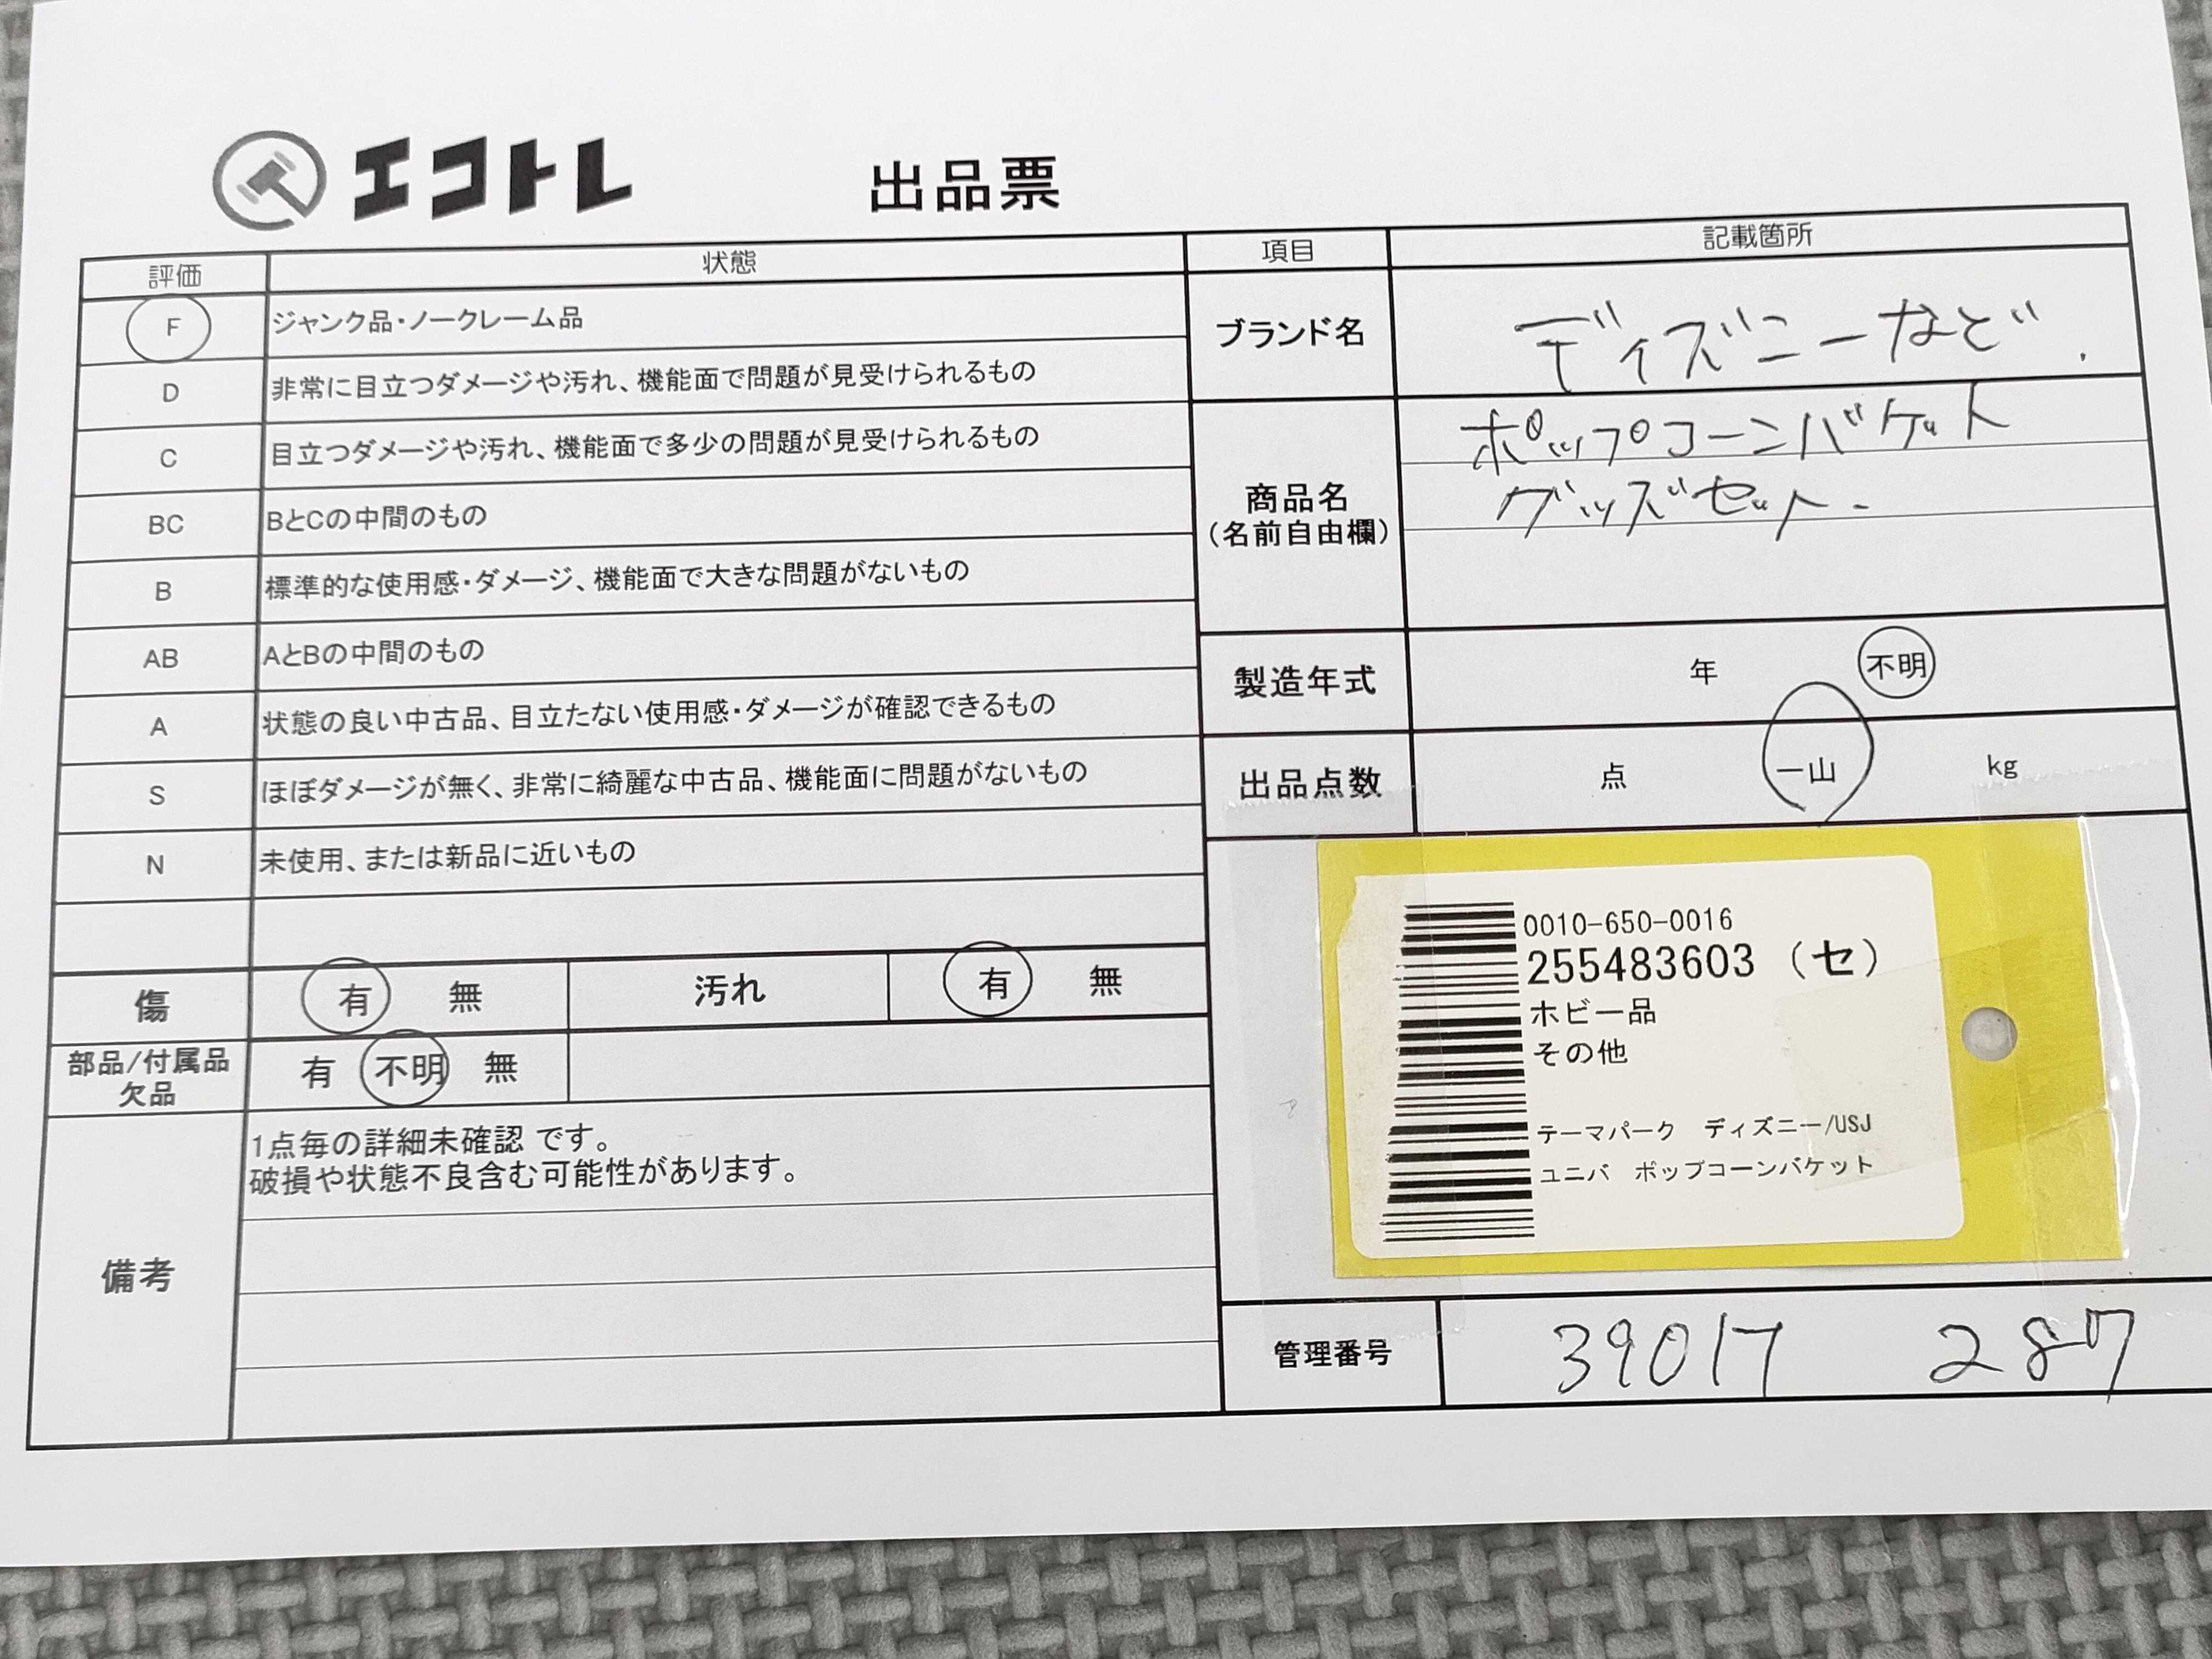 エコトレ 出品票
評価 状態
F ジャンク品・ノークレーム品
D 非常に目立つダメージや汚れ、機能面で問題が見受けられるもの
C 目立つダメージや汚れ、機能面で多少の問題が見受けられるもの
BC BとCの中間のもの
B 標準的な使用感・ダメージ、機能面で大きな問題がないもの
AB AとBの中間のもの
A 状態の良い中古品、目立たない使用感・ダメージが確認できるもの
S ほぼダメージが無く、非常に綺麗な中古品、機能面に問題がないもの
N 未使用、または新品に近いもの
傷 有 無 汚れ 有 無
部品/付属品
欠品
有 不明 無
備考
1点毎の詳細未確認 です。
破損や状態不良含む可能性があります。
項目 記載箇所
ブランド名 ディズニーなど
商品名
(名前自由欄)
ポップコーンバケット
グッズセット
製造年式 年 不明
出品点数 点 一山 kg
0010-650-0016
255483603 (セ)
ホビー品
その他
テーマパーク ディズニー/USJ
ユニバ ポップコーンバケット
管理番号 39017 287